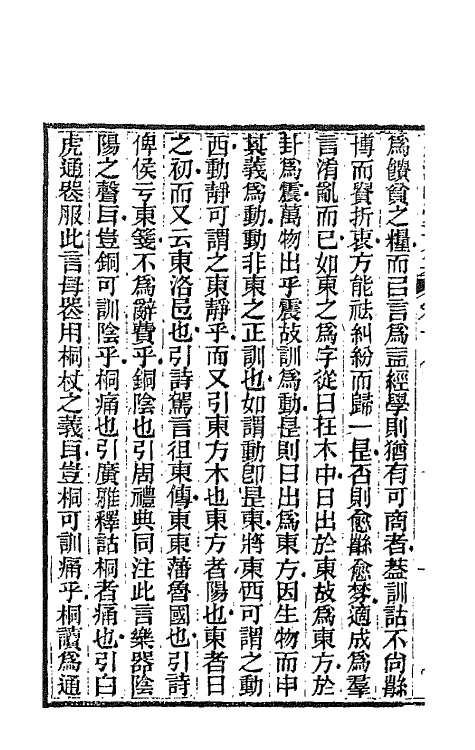 爲饋貧之糧而已言爲益經學則猶有可商者葢訓詁不尙緐
博而賚折衷方能祛糾紛而歸一是否則愈緐愈棼適成爲羣
言淆亂而已如東之爲字從日在木中日出於東故爲東方於
卦爲震萬物出乎震故訓爲動是則日出爲東方因生物而申
其義爲動動非東之正訓也如謂動卽是東將東西可謂之動
西動靜可謂之東靜乎而又引東方木也東方者陽也東者日
之初而又云東洛邑也引詩駕言徂東傳東東藩魯國也引詩
俾侯亏東箋不爲辭費乎銅陰也引周禮典同注此言樂器陰
陽之聲耳豈銅可訓陰乎桐痛也引廣雅釋詁桐者痛也引白
虎通器服此言母器用桐杖之義耳豈桐可訓痛乎桐讀爲通